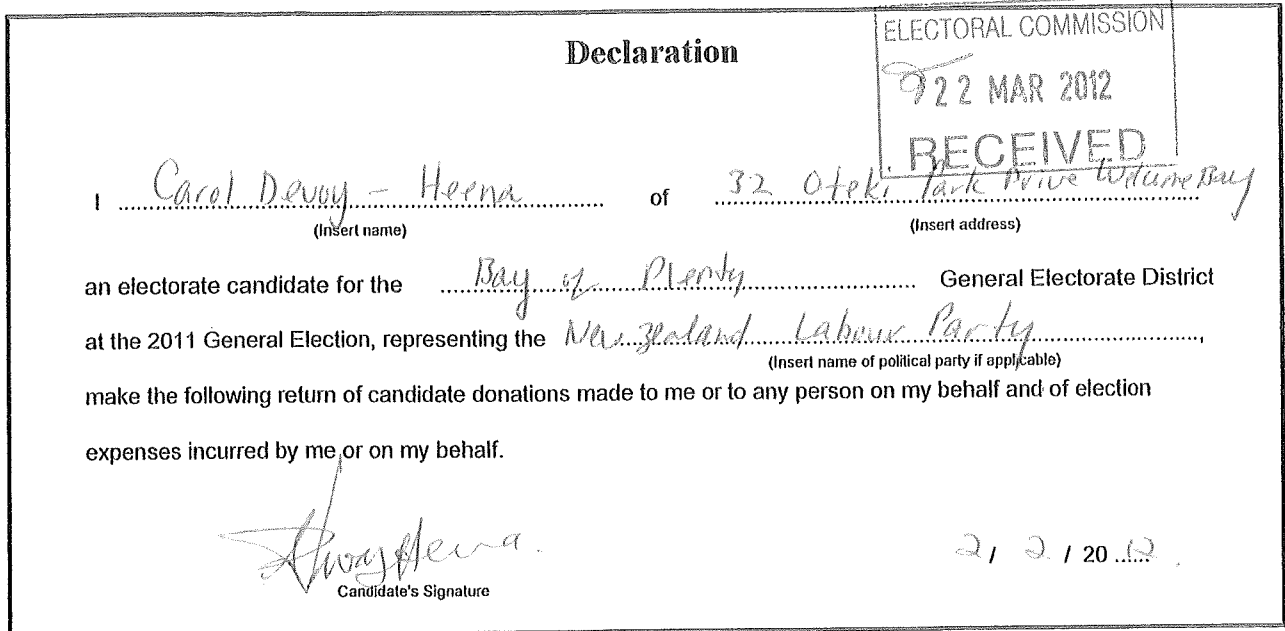 Declaration
ELECTORAL COMMISSION
22 MAR 2012
RECEIVED
I Carol Devoy - Heena of 32 Oteki Park Drive Welcome Bay
(Insert name) (Insert address)
an electorate candidate for the Bay of Plenty General Electorate District
at the 2011 General Election, representing the New Zealand Labour Party,
(Insert name of political party if applicable)
make the following return of candidate donations made to me or to any person on my behalf and of election
expenses incurred by me or on my behalf.
2/ 2 / 20 12
Candidate's Signature